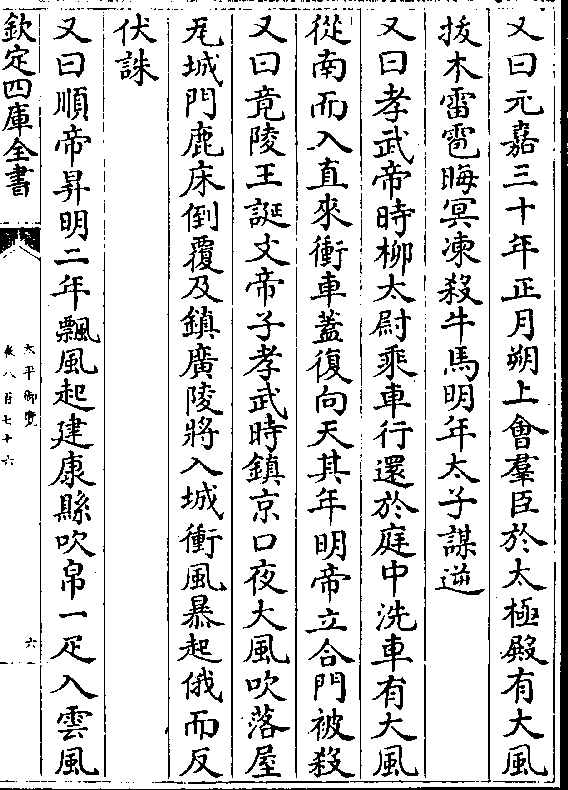 又曰元嘉三十年正月朔上會羣臣於太極殿有大風
拔木雷雹晦冥凍殺牛馬明年太子謀逆
又曰孝武帝時柳太尉乘車行還於庭中洗車有大風
從南而入直來衝車蓋復向天其年明帝立合門被殺
又曰竟陵王誕文帝子孝武時鎮京口夜大風吹落屋
瓦城門鹿床倒覆及鎮廣陵將入城衝風暴起俄而反
伏誅
又曰順帝昇明二年飄風起建康縣吹帛一疋入雲風
欽定四庫全書
太平御覽
卷八百七十六
六